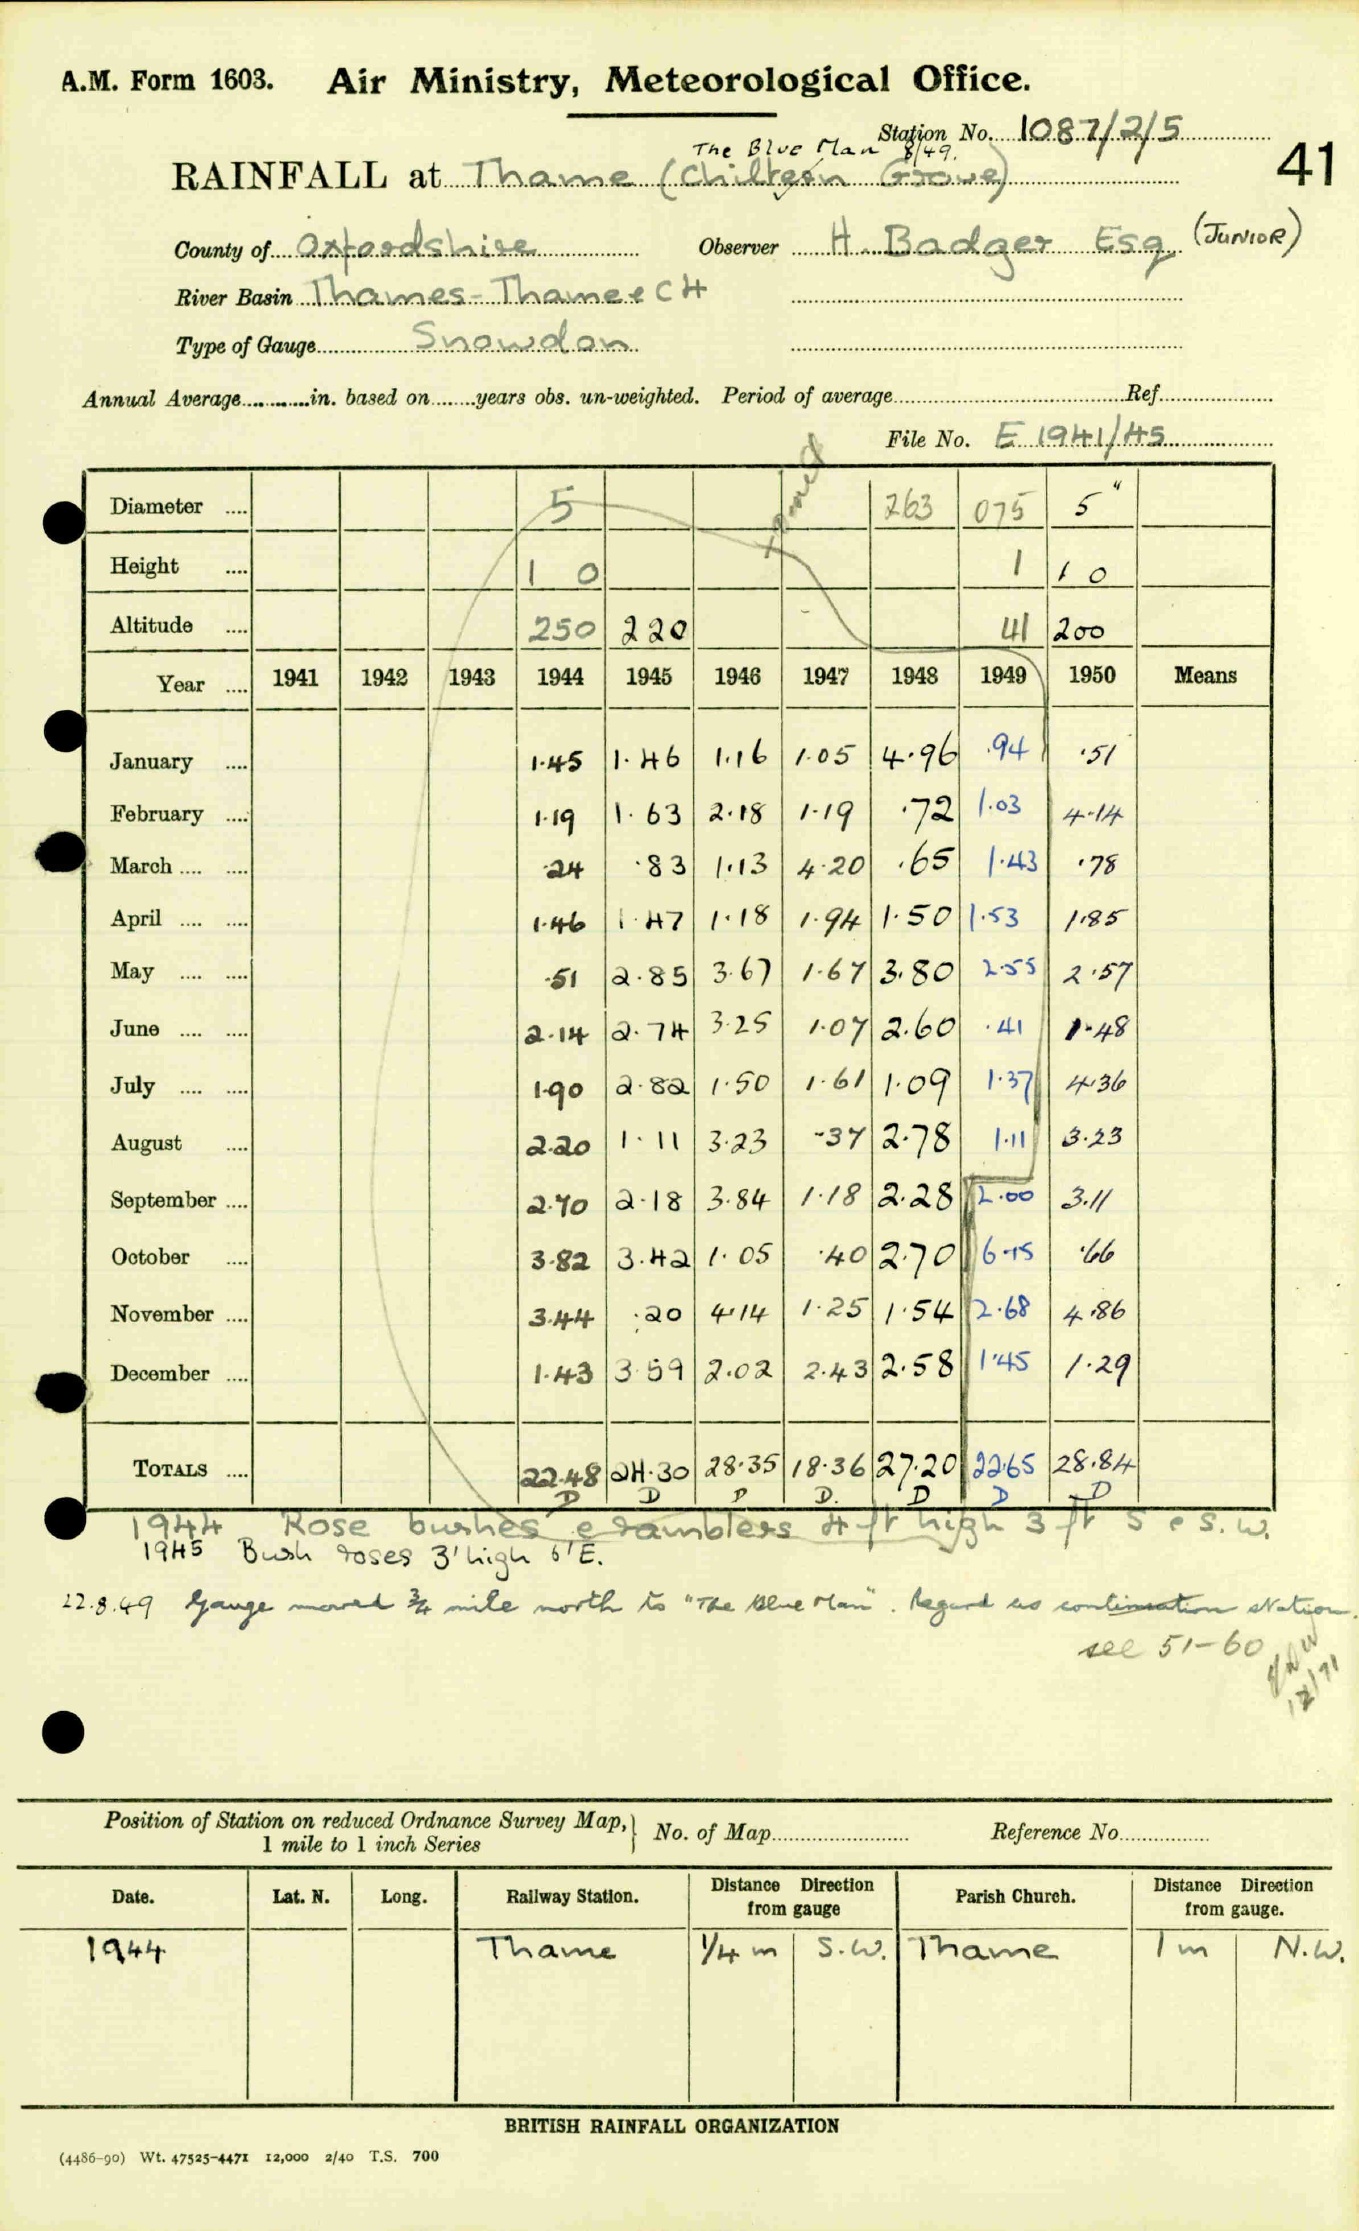 A.M. Form 1603. Air Ministry, Meteorological Office.
Station No. 1087/2/5
41
The Blue Man 8/49.
RAINFALL at Thame (Chiltern Grove)
County of Oxfordshire Observer H. Badger Esq (JUNIOR)
River Basin Thames-Thame e C H
Type of Gauge Snowdon
Annual Average in. based on years obs. un-weighted. Period of average Ref
File No. E 1941/45
Diameter 5 263 075 5"
Height 1 0 1 1 0
Altitude 250 220 41 200
Year 1941 1942 1943 1944 1945 1946 1947 1948 1949 1950 Means
January 1.45 1.46 1.16 1.05 4.96 .94 .51
February 1.19 1.63 2.18 1.19 .72 1.03 4.14
March .24 .83 1.13 4.20 .65 1.43 .78
April 1.46 1.47 1.18 1.94 1.50 1.53 1.85
May .51 2.85 3.67 1.67 3.80 2.55 2.57
June 2.14 2.74 3.25 1.07 2.60 .41 1.48
July 1.90 2.82 1.50 1.61 1.09 1.37 4.36
August 2.20 1.11 3.23 .37 2.78 1.11 3.23
September 2.70 2.18 3.84 1.18 2.28 2.00 3.11
October 3.82 3.42 1.05 .40 2.70 6.15 .66
November 3.44 .20 4.14 1.25 1.54 2.68 4.86
December 1.43 3.59 2.02 2.43 2.58 1.45 1.29
TOTALS 22.48 24.30 28.35 18.36 27.20 22.65 28.84
D D D D. D D D
1944 Rose bushes e ramblers 4 ft high 3 ft S e S.W.
1945 Bush roses 3' high 6' E.
22.8.49 Gauge moved 3/4 mile north to "The Blue Man". Regard as continuation station.
see 51-60
12/71
Position of Station on reduced Ordnance Survey Map, 1 mile to 1 inch Series } No. of Map Reference No.
Date. Lat. N. Long. Railway Station. Distance Direction from gauge Parish Church. Distance Direction from gauge.
1944 Thame 1/4 m S.W. Thame 1 m N.W.
BRITISH RAINFALL ORGANIZATION
(4486-90) Wt. 47525-4471 12,000 2/40 T.S. 700